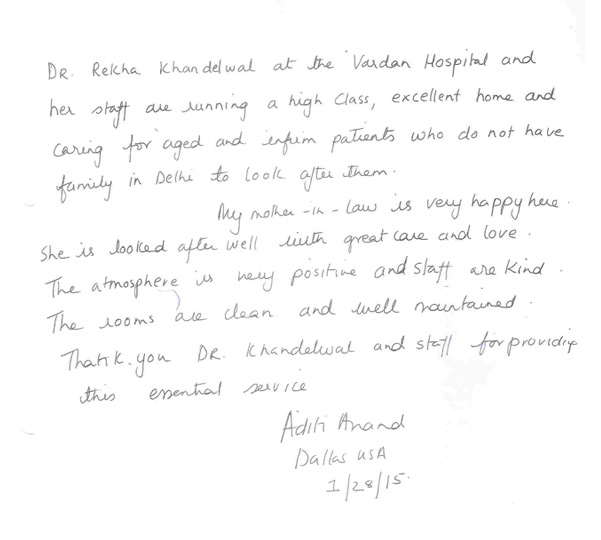 DR. Rekha Khandelwal at the Vardan Hospital and
her staff are running a high class, excellent home and
caring for aged and infirm patients who do not have
family in Delhi to look after them.
My mother-in-law is very happy here.
She is looked after well with great care and love.
The atmosphere is very positive and staff are kind.
The rooms are clean and well maintained.
Thank.you DR. Khandelwal and staff for providing
this essential service
Aditi Anand
Dallas USA
1/28/15.